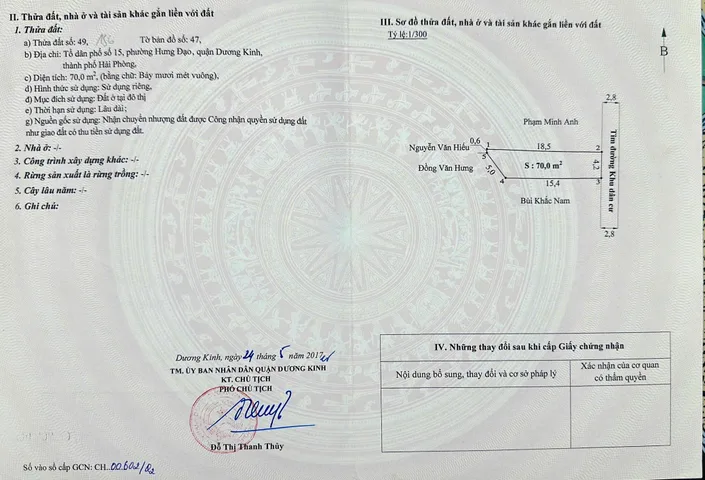 II. Thửa đất, nhà ở và tài sản khác gắn liền với đất
1. Thửa đất:
a) Thửa đất số: 49, Tờ bản đồ số: 47,
b) Địa chỉ: Tổ dân phố số 15, phường Hưng Đạo, quận Dương Kinh,
thành phố Hải Phòng,
c) Diện tích: 70,0 m², (bằng chữ: Bảy mươi mét vuông),
d) Hình thức sử dụng: Sử dụng riêng,
đ) Mục đích sử dụng: Đất ở tại đô thị
e) Thời hạn sử dụng: Lâu dài;
g) Nguồn gốc sử dụng: Nhận chuyển nhượng đất được Công nhận quyền sử dụng đất
như giao đất có thu tiền sử dụng đất.
2. Nhà ở: -/-
3. Công trình xây dựng khác: -/-
4. Rừng sản xuất là rừng trồng: -/-
5. Cây lâu năm: -/-
6. Ghi chú:
Dương Kinh, ngày 24 tháng 5 năm 2017
TM. ỦY BAN NHÂN DÂN QUẬN DƯƠNG KINH
KT. CHỦ TỊCH
PHÓ CHỦ TỊCH
Đỗ Thị Thanh Thủy
Số vào sổ cấp GCN: CH..00.602/
III. Sơ đồ thửa đất, nhà ở và tài sản khác gắn liền với đất
Tỷ lệ:1/300
B
2,8
Phạm Minh Anh
Nguyễn Văn Hiếu
0,6
1
18,5
2
5
Đồng Văn Hưng
5,0
S : 70,0 m²
4,2
Tim đường Khu dân cư
4
15,4
3
Bùi Khắc Nam
2,8
IV. Những thay đổi sau khi cấp Giấy chứng nhận
Nội dung bổ sung, thay đổi và cơ sở pháp lý
Xác nhận của cơ quan
có thẩm quyền